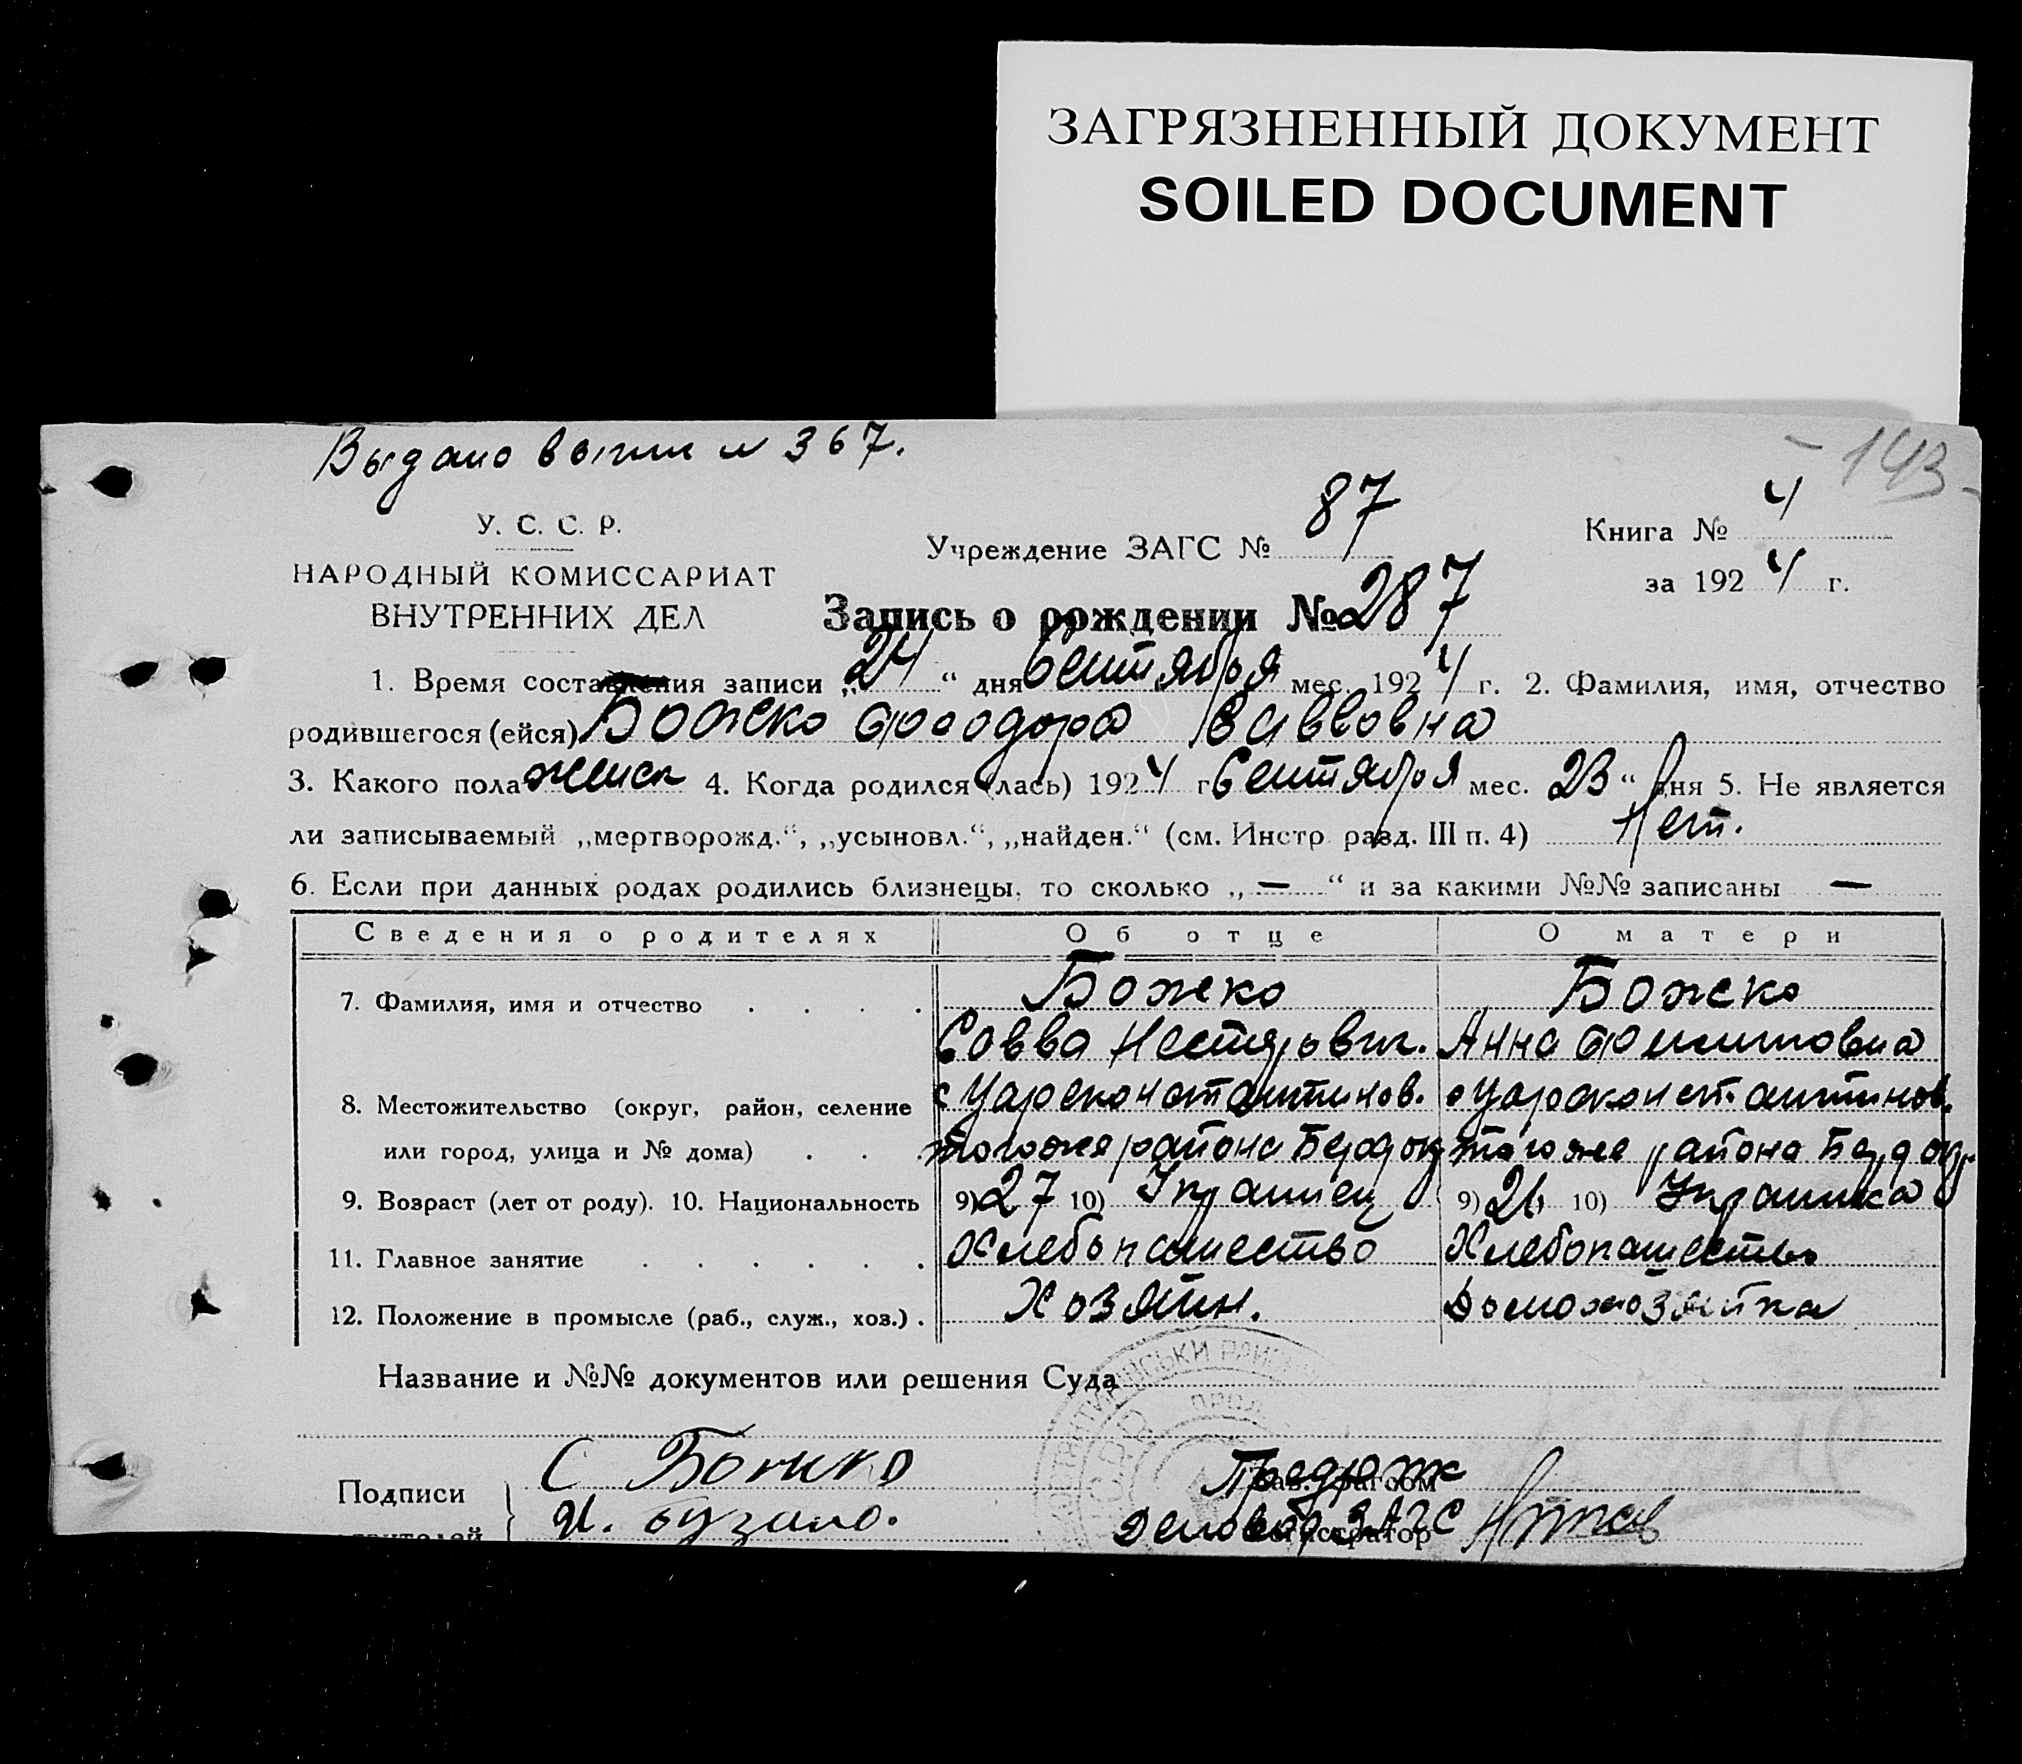 ЗАГРЯЗНЕННЫЙ ДОКУМЕНТ
SOILED DOCUMENT
Выдано выпис № 367.
- 143 -
У. С. С. Р.
НАРОДНЫЙ КОМИССАРИАТ
ВНУТРЕННИХ ДЕЛ
Учреждение ЗАГС № 87
Книга № 4
за 1924 г.
Запись о рождении № 287
1. Время составления записи „24“ дня Сентября мес. 1924 г. 2. Фамилия, имя, отчество
родившегося (ейся) Божко Феодора Саввовна
3. Какого пола женск 4. Когда родился (лась) 1924 г Сентября мес. 23 “ дня 5. Не является
ли записываемый „мертворожд.“, „усыновл.“, „найден.“ (см. Инстр. разд. III п. 4) Нет.
6. Если при данных родах родились близнецы, то сколько „—“ и за какими №№ записаны —
Сведения о родителях Об отце О матери
7. Фамилия, имя и отчество . . . . Божко Божко
Савва Нестеров. Анна
8. Местожительство (округ, район, селение с Цареконстантинов. с Цареконстантинов.
или город, улица и № дома) . . . тогоже района Берд окр тогоже района Берд окр.
9. Возраст (лет от роду). 10. Национальность 9) 27 10) Украинец 9) 26 10) Украинка
11. Главное занятие . . . . . . Хлебопашество Хлебопашество
12. Положение в промысле (раб., служ., хоз.) . Хозяин. Домохозяйка
Название и №№ документов или решения Суда
Подписи С Божко Зав. Загсом
Регистратор